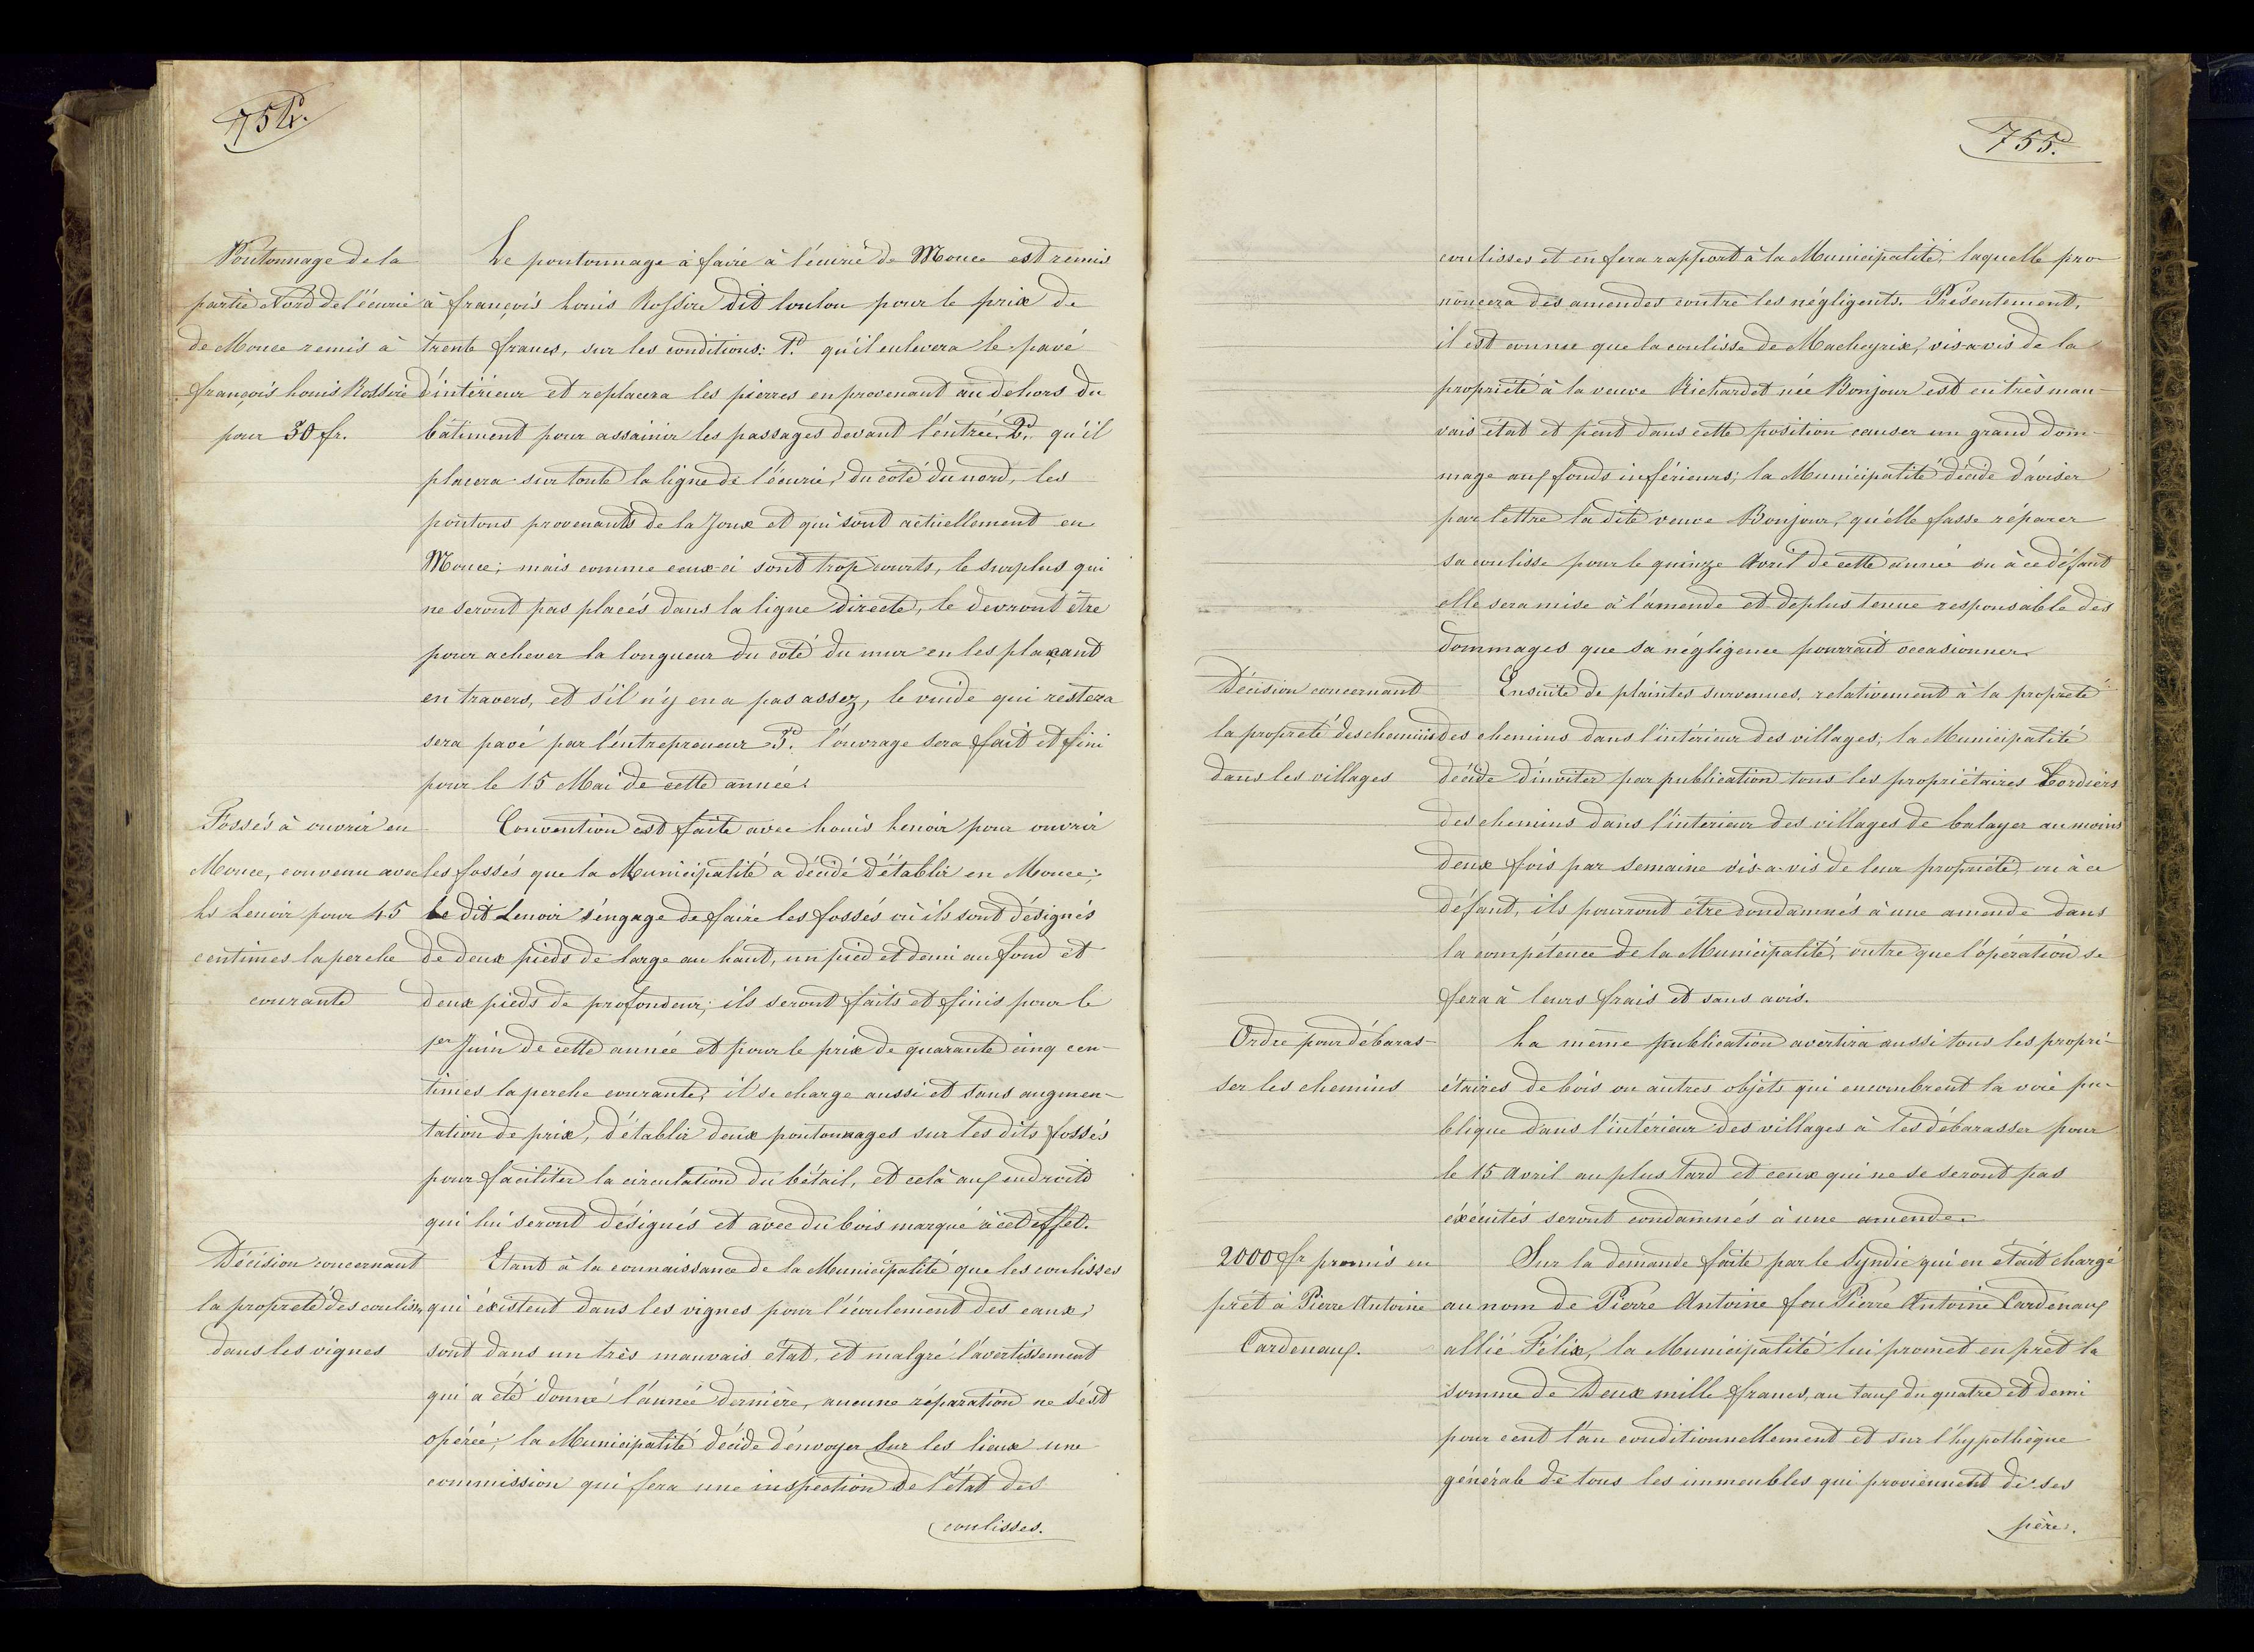 754.
Pontonnage de la
partie Nord de l'écurie
de Mouce remis à
françois Louis Rossire
pour 30 fr.
Le pontonnage à faire à l'écurie de Mouce est remis
à françois Louis Rossire dit loulou pour le prix de
trente francs, sur les conditions: 1° qu'il enlevera le pavé
d'intérieur et replacera les pierres en provenant au dehors du
bâtiment pour assainir les passages devant l'entrée, 2° qu'il
placera sur toute la ligne de l'écurie, du côté du nord, les
pontons provenants de la Joux et qui sont actuellement en
Mouce; mais comme ceux-ci sont trop courts, le surplus qui
ne seront pas placés dans la ligne directe, le devront être
pour achever la longueur du côté du mur en les plaçant
en travers, et s'il n'y en a pas assez, le vuide qui restera
sera pavé par l'entrepreneur 3° l'ouvrage sera fait et fini
pour le 15 Mai de cette année.
Fossés à ouvrir en
Mouce, convenu avec
Ls Lenoir pour 45
centimes la perche
courante
Convention est faite avec Louis Lenoir pour ouvrir
les fossés que la Municipalité a décidé d'établir en Mouce;
le dit Lenoir s'engage de faire les fossés où ils sont désignés
de deux pieds de large au haut, un pied et demi au fond et
deux pieds de profondeur; ils seront faits et finis pour le
1er Juin de cette année et pour le prix de quarante cinq cen-
times la perche courante; il se charge aussi et sans augmen-
tation de prix, d'établir deux pontonnages sur les dits fossés
pour faciliter la circulation du bétail, et celà aux endroits
qui lui seront désignés et avec du bois marqué à cet effet.
Décision concernant
la propreté des coulisses
dans les vignes
Etant à la connaissance de la Municipalité que les coulisses
qui éxistent dans les vignes pour l'écoulement des eaux,
sont dans un très mauvais état, et malgré l'avertissement
qui a été donné l'année dernière, aucune réparation ne s'est
opérée; la Municipalité décide d'envoyer sur les lieux une
commission qui fera une inspection de l'état des
coulisses.
755.
coulisses et en fera rapport à la Municipalité, laquelle pro-
noncera des amendes contre les négligents. Présentement,
il est connu que la coulisse de Macheyrix, vis-a-vis de la
propriété à la veuve Richardet née Bonjour est en très mau-
vais état et peut dans cette position causer un grand dom-
mage aux fonds inférieurs; la Municipalité décide d'aviser
par lettre la dite veuve Bonjour, qu'elle fasse réparer
sa coulisse pour le quinze Avril de cette année ou à ce défaut
elle sera mise à l'amende et de plus tenue responsable des
dommages que sa négligence pourrait occasionner.
Décision concernant
la propreté des chemins
dans les villages
Ensuite de plaintes survenues, relativement à la propreté
des chemins dans l'intérieur des villages; la Municipalité
décide d'inviter par publication tous les propriétaires bordiers
des chemins dans l'intérieur des villages de balayer au moins
deux fois par semaine vis-a-vis de leur propriété, ou à ce
défaut, ils pourront être condamnés à une amende dans
la compétence de la Municipalité, outre que l'opération se
fera à leurs frais et sans avis.
Ordre pour débaras-
ser les chemins
La même publication avertira aussi tous les propri-
étaires de bois ou autres objets qui encombrent la voie pu-
blique dans l'intérieur des villages à les débarasser pour
le 15 Avril au plus tard et ceux qui ne se seront pas
éxécutés seront condamnés à une amende.
2000 fr promis en
prêt à Pierre Antoine
Cardenaux.
Sur la demande faite par le Syndic qui en était chargé
au nom de Pierre Antoine feu Pierre Antoine Cardenaux
allié Félix, la Municipalité lui promet en prêt la
somme de Deux mille francs, au taux du quatre et demi
pour cent l'an conditionnellement et sur l'hypothèque
générale de tous les immeubles qui proviennent de ses
père.